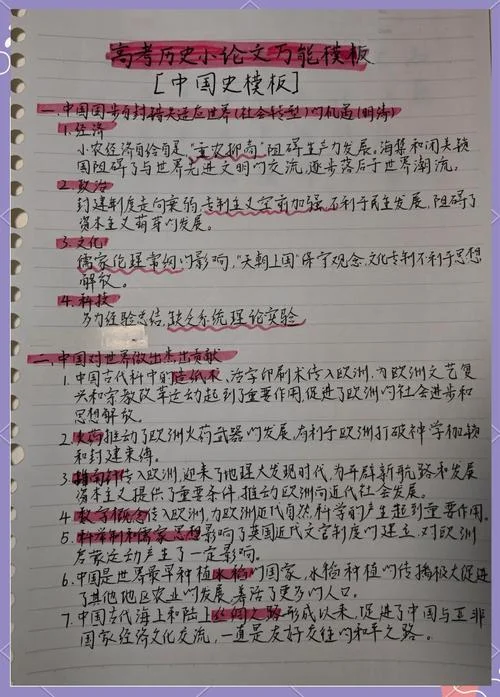 高考历史小论文万能模板
[中国史模板]
一.中国固步自封错失适应世界(社会转型)的机遇(明清)
1.经济
小农经济自给自足"重农抑商"阻碍生产力发展。海禁和闭关锁
国阻碍了与世界先进文明的交流,逐步落后于世界潮流。
2.政治
封建制度走向衰的专制主义空前加强不利于民主发展,阻碍了
资本主义萌芽的发展。
3.文化
儒家伦理常纲的影响,"天朝上国"保守观念,文化专制不利于思想
解放。
4.科技
多为经验总结,缺乏系统理论实验
二.中国对世界做出杰出贡献
1.中国古代科中的造纸术、活字印刷术传入欧洲,为欧洲文艺复
兴和宗教改革运动起到了重要作用,促进了欧洲的社会进步和
思想解放。
2.火药推动了欧洲火药武器的发展,有利于欧洲打破神学枷锁
和封建束缚。
3.指南针传入欧洲,迎来了地理大发现时代,为开辟新航路和发展
资本主义提供了重要条件,推动欧洲向近代社会发展。
4.数学概念传入欧洲,为欧洲近代自然科学的产生起到重要作用。
5.科举制和儒家思想影响了英国近代文官制度的建立,对欧洲
启蒙运动产生了一定影响。
6.中国是世界最早种植水稻的国家,水稻种植的传播极大促进
了其他地区农业的发展,养活了更多的人口。
7.中国古代海上和陆上丝绸之路形成以来,促进了中国与亚非
国家经济文化交流,一直是友好交往的和平之路。